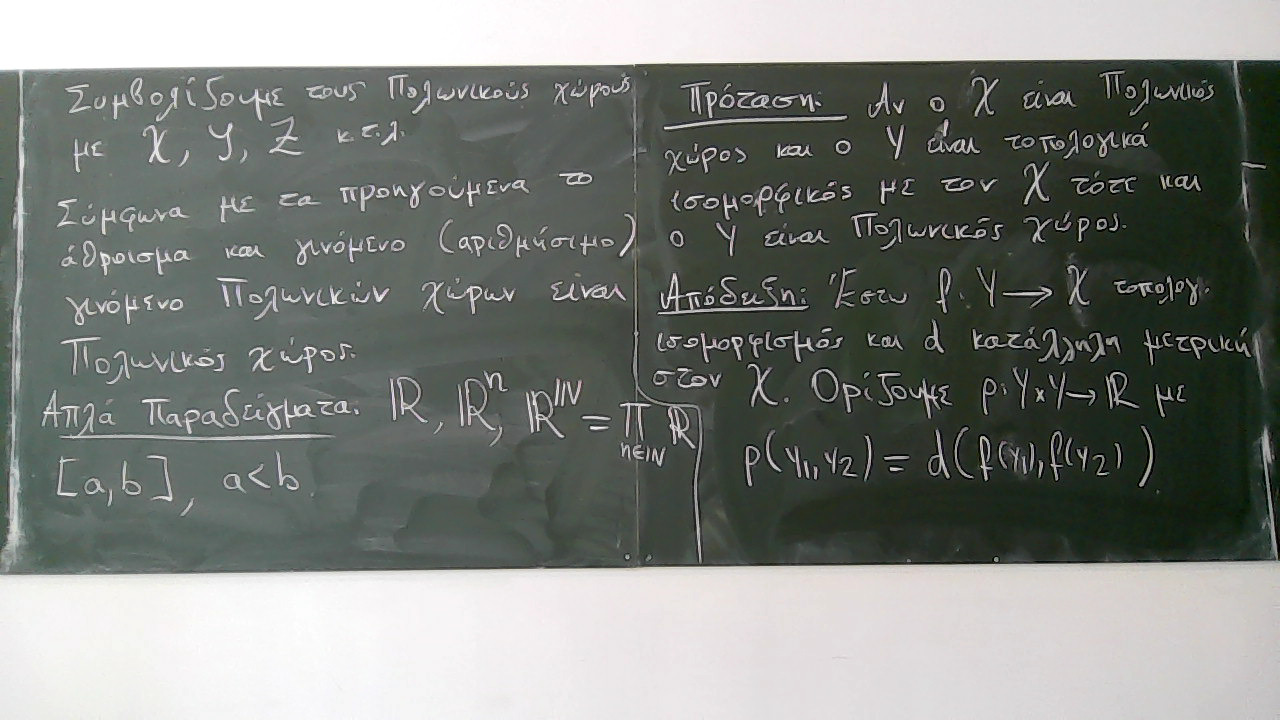 Συμβολίζουμε τους Πολωνικούς χώρους
με X, Y, Z κ.τ.λ.
Σύμφωνα με τα προηγούμενα το
άθροισμα και γινόμενο (αριθμήσιμο)
γινόμενο Πολωνικών χώρων είναι
Πολωνικός χώρος.
Απλά Παραδείγματα. ℝ, ℝⁿ, ℝ^ℕ = ∏_{n∈ℕ} ℝ
[a,b], a<b
Πρόταση: Αν ο X είναι Πολωνικός
χώρος και ο Y είναι τοπολογικά
ισομορφικός με τον X τότε και
ο Y είναι Πολωνικός χώρος.
Απόδειξη: Έστω f: Y → X τοπολογ.
ισομορφισμός και d κατάλληλη μετρική
στον X. Ορίζουμε ρ: Y×Y → ℝ με
ρ(y₁,y₂) = d(f(y₁), f(y₂))